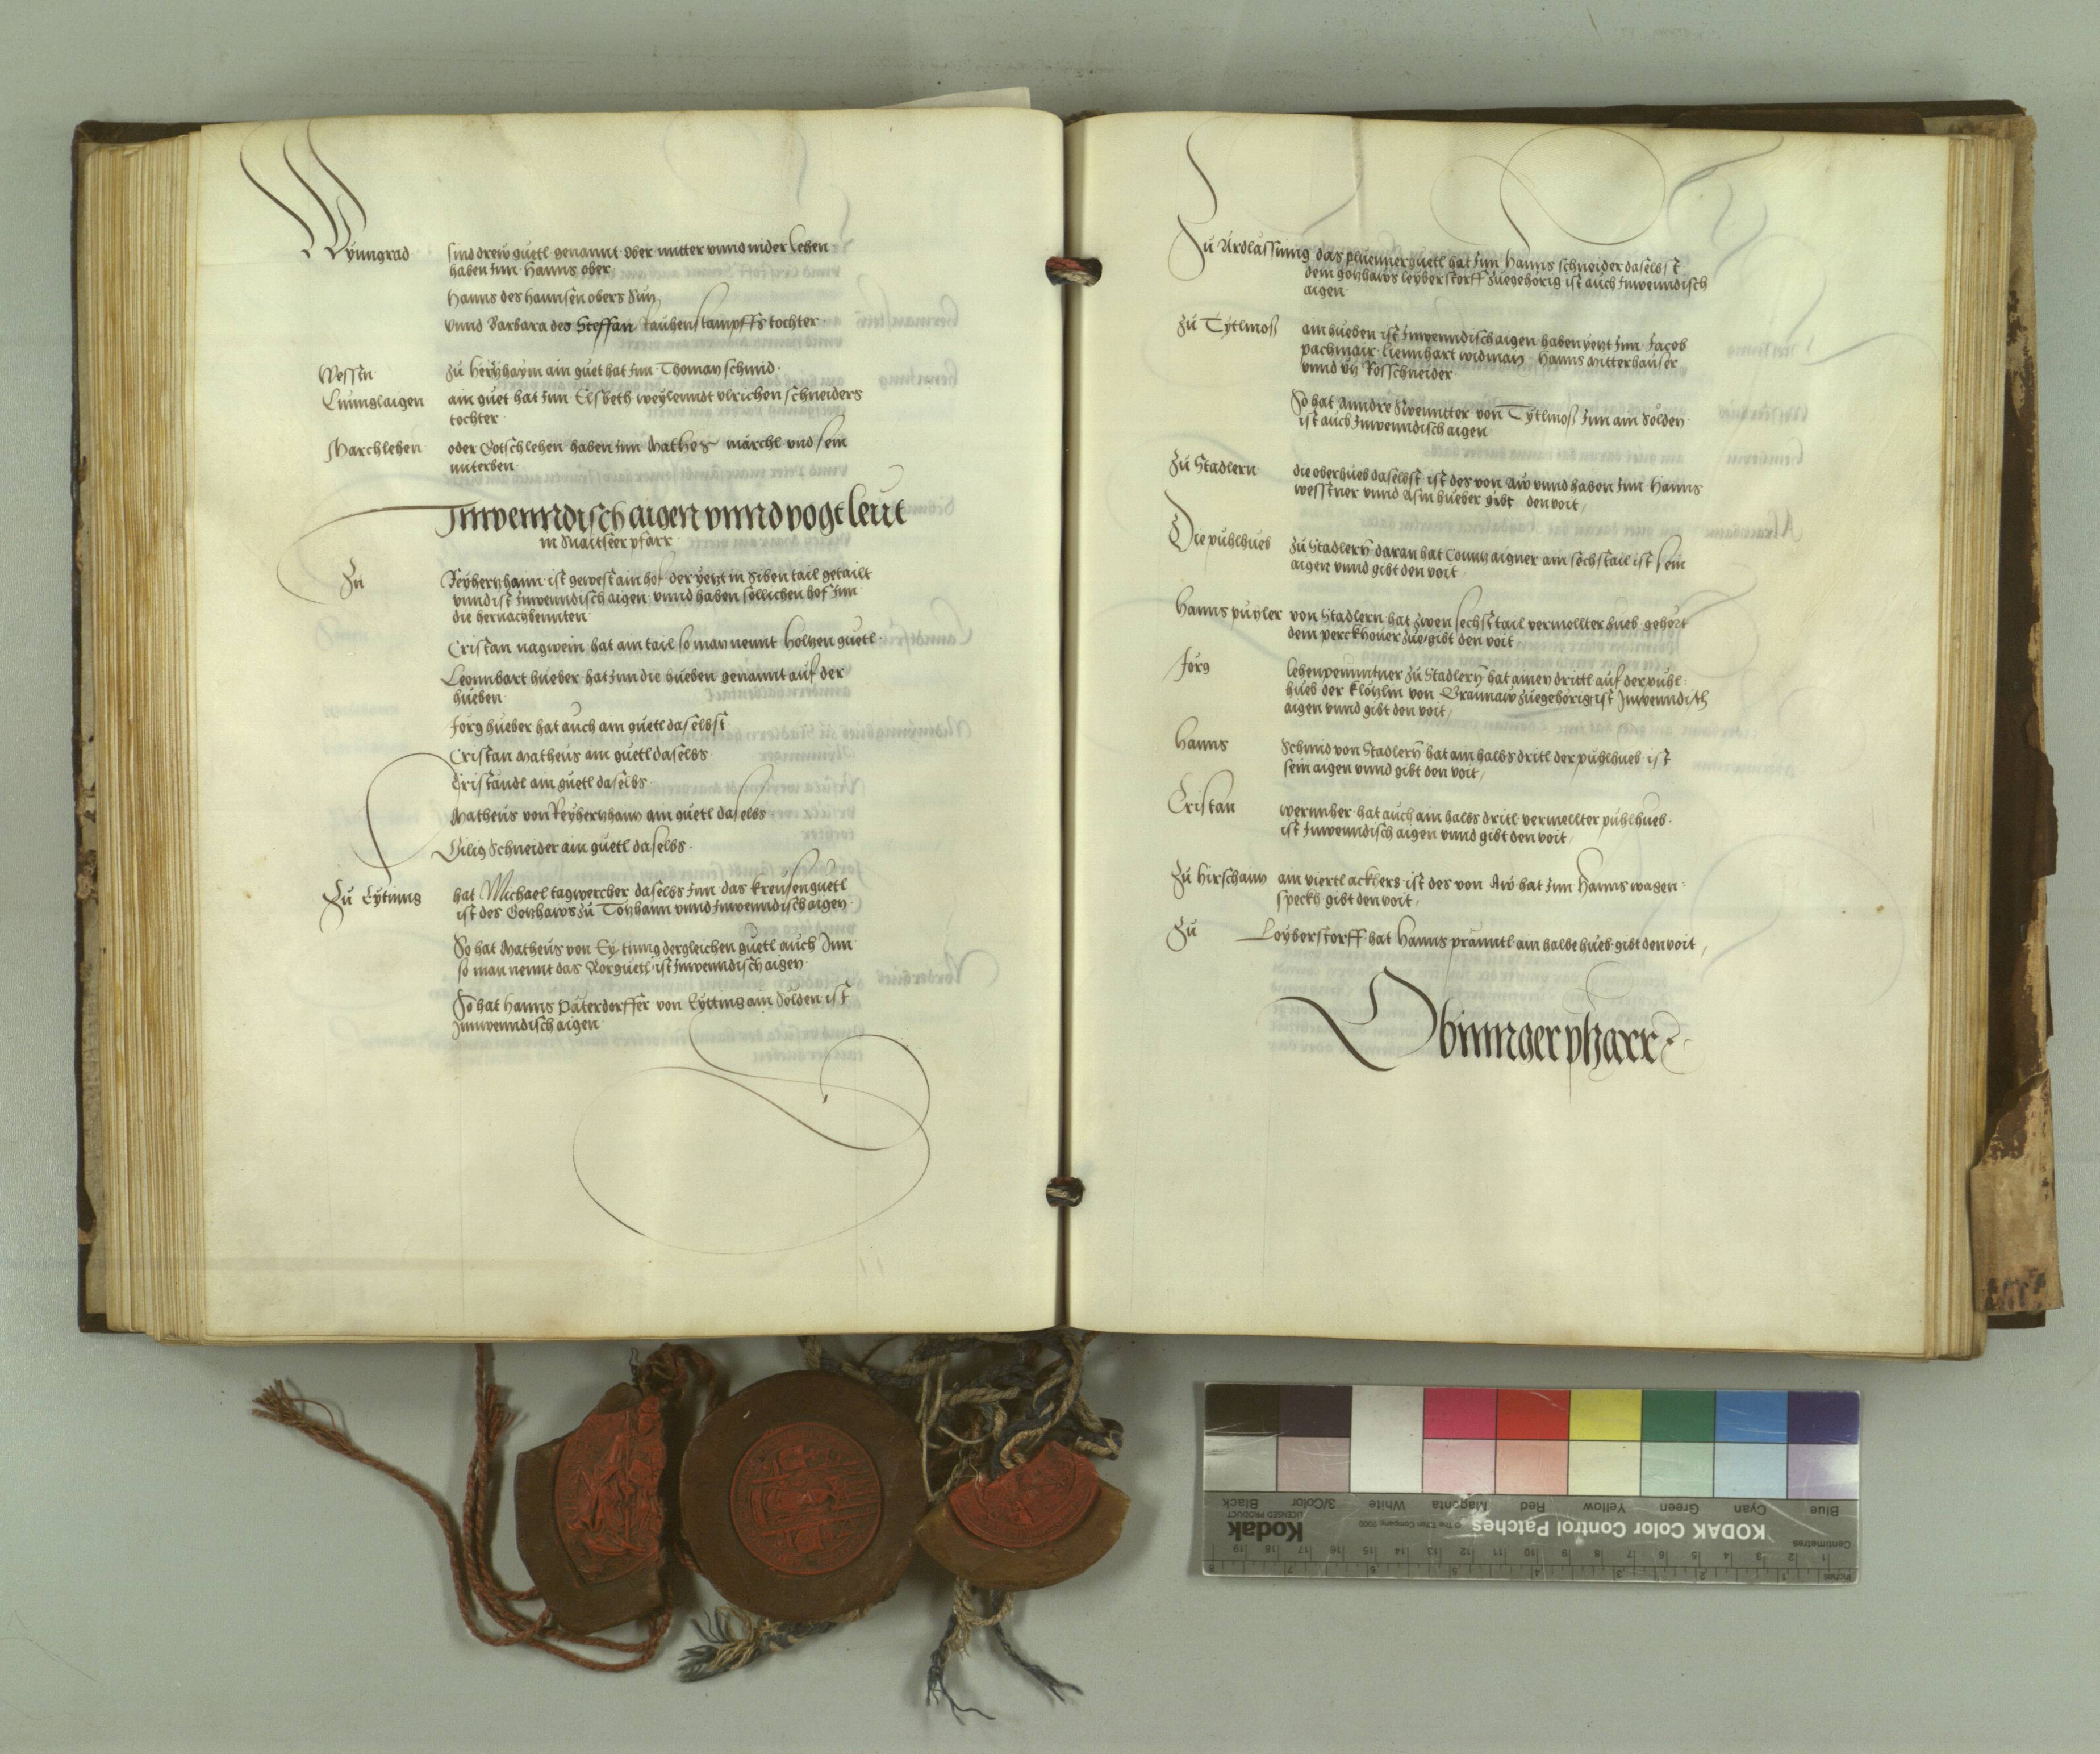 Wynngrad sind drew guetl genannt Ober mitter vnnd nider Lehen
haben Inn Hanns ober
Hanns des hannsen obers Sun
vnnd Barbara des Steffan Rauhenstampffs tochter
Wessen zu herzhaym ain guet hat Inn Thoman schmid
Lunglaigen ain guet hat Inn Elsbeth weylenndt vlrichen schneiders
tochter
Marchlehen oder Gotschlehen haben Inn Mathes march vnd sein
miterben
Innwenndisch aigen vnnd vogtleut
in Snaitseer pfarr
Zu Reyhertzhann ist gewest ain hof der yetzt in Siben tail getailt
vnnd ist Innwenndisch aigen vnnd haben sollichen hof Inn
die hernachbennten
Cristan nagwein hat ain tail so man nennt holtzen guetl
Leonnhart hueber hat Inn die hueben genannt auf der
hueben
Jorg hueber hat auch ain guetl daselbst
Cristan Matheus ain guetl daselbs
Cristandl ain guetl daselbs
Matheus von Reyhertzham ain guetl daselbs
Gilig Schneider ain guetl daselbs
Zu Eytting hat Michael tagwercher daselbs Inn das kreusenguetl
ist des Gotzhaws zu Totzhann vnnd Innwenndisch aigen
So hat Matheus von Eytinng dergleichen guetl auch Inn
so man nennt das Rorguetl ist Innwenndisch aigen
So hat Hanns Päterdorffer von Eytting ain Sölden ist
Innwenndisch aigen
Zu Ardlassinng das pluemerguetl hat Inn Hanns schneider daselbst
dem gotzhaws leyberstorff zuegehorig ist auch Inwenndisch
aigen
zu Tytlmoß ain hueben ist Inwenndisch aigen haben yetzt Inn Jacob
pachmair Liennhart widman Hanns Mitterhauser
vnnd Vtz Rosschneider
So hat Anndre Swenntter von Tytlmoß Inn ain Sölden
ist auch Inwenndisch aigen
Zu Stadlern die oberhueb daselbst ist des von Aw vnnd haben Inn Hanns
wesstner vnnd Asm hueber gibt den voit
Die puhlhueb zu Stadlern daran hat Conntz aigner ain sechstail ist sein
aigen vnnd gibt den voit
Hanns puhler von Stadlern hat zwen sechstail vermellter hueb gehört
dem perckhouer zue gibt den voit
Jorg lehenpenntner zu Stadlern hat ainen drittl auf der puhl
hueb der Klöulm von Braunaw zuegehörig ist Inwenndisch
aigen vnnd gibt den voit
Hanns Schmid von Stadlern hat ain halbs dritl der puhlhueb ist
sein aigen vnnd gibt den voit
Cristan wernnher hat auch ain halbs dritl vermellter puhlhueb
ist Inwenndisch aigen vnnd gibt den voit
Zu Hirschaim ain viertl ackhers ist des von Aw hat Inn Hanns wagen
speckh gibt den voit
Zu Leyberstorff hat Hanns pranntl ain halbe hueb gibt den voit
Obinnger pharr
Blue Cyan Green Yellow Red Magenta White 3/Color Black
KODAK Color Control Patches
Kodak
LICENSED PRODUCT
Centimetres
1 2 3 4 5 6 7 8 9 10 11 12 13 14 15 16 17 18 19
Inches